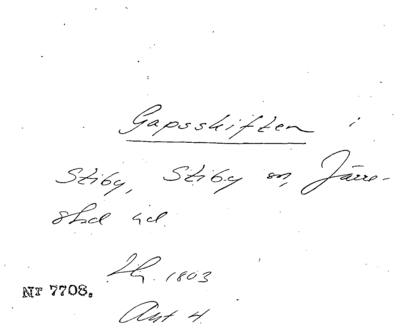 Gapsskiften i
Stiby, Stiby sn, Järre-
stad hd.
Lh. 1803
Nr 7708.
Akt 4